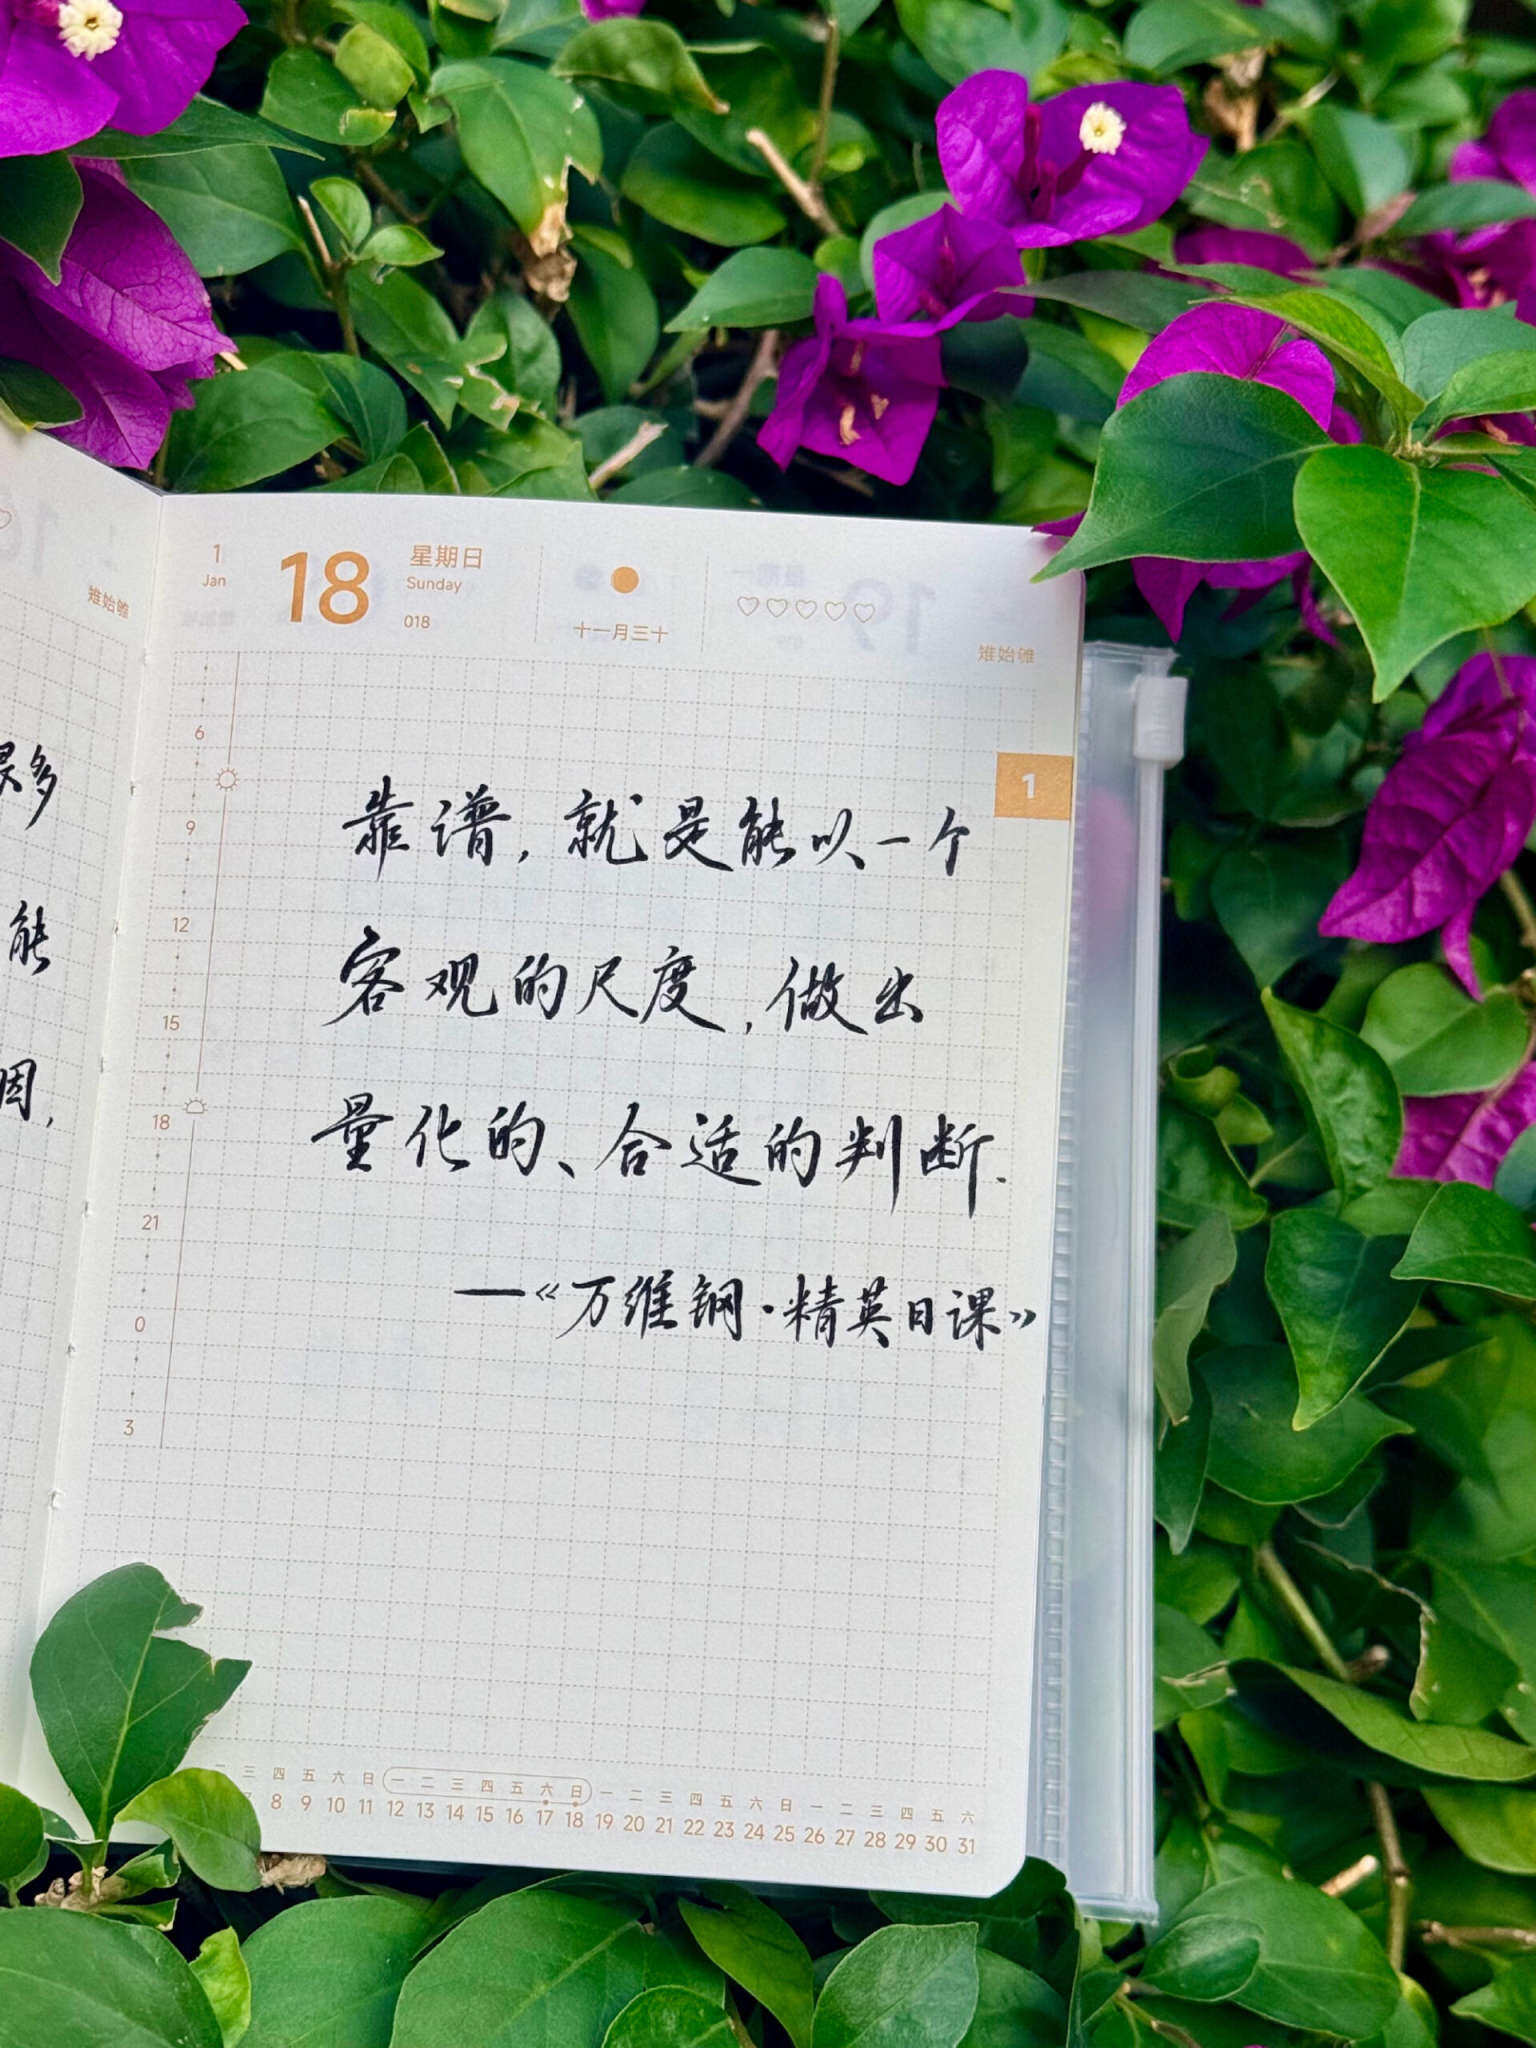 很多
能
因,
雉始雊
1
Jan
18
星期日
Sunday
018
十一月三十
雉始雊
1
6
9
12
15
18
21
0
3
靠谱,就是能以一个
客观的尺度,做出
量化的、合适的判断.
—《万维钢·精英日课》
三 四 五 六 日 一 二 三 四 五 六 日 一 二 三 四 五 六 日 一 二 三 四 五 六
8 9 10 11 12 13 14 15 16 17 18 19 20 21 22 23 24 25 26 27 28 29 30 31